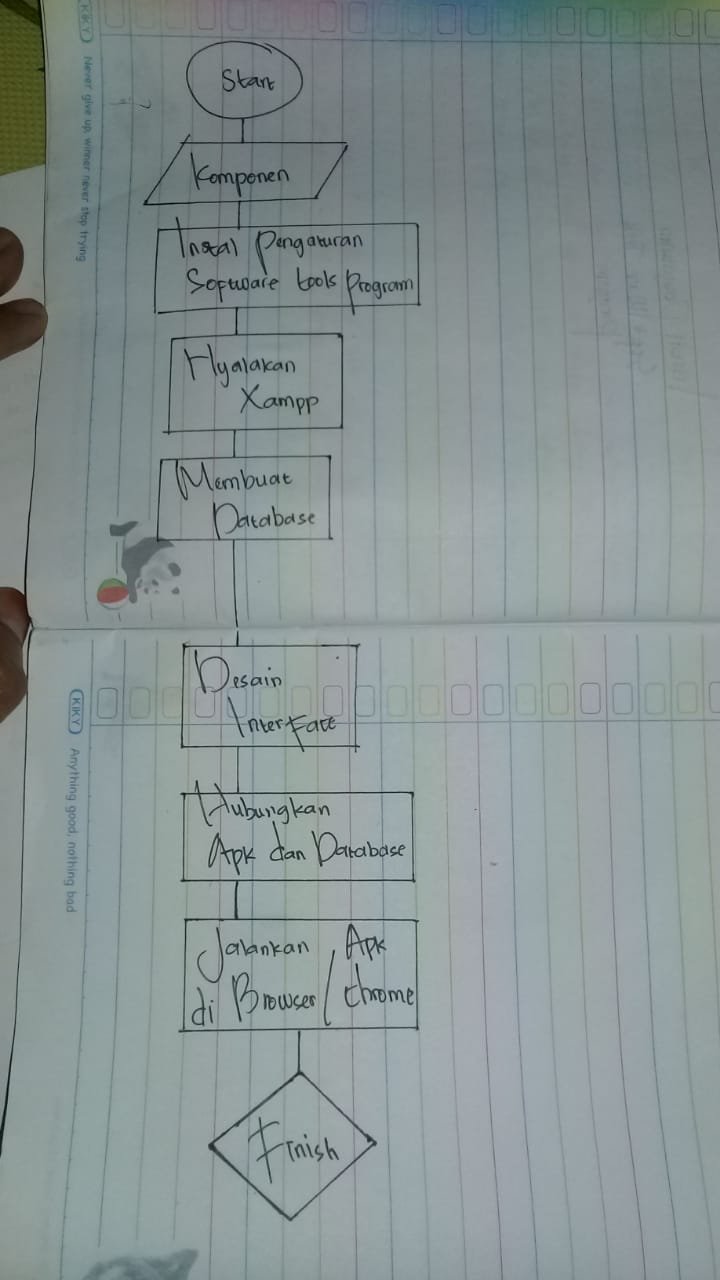 KIKY
Never give up, winner never stop trying
Start
Komponen
Instal Pengaturan
Software tools Program
Nyalakan
Xampp
Membuat
Database
Desain
Interface
KIKY
Anything good, nothing bad
Hubungkan
Apk dan Database
Jalankan Apk
di Browser/Chrome
Finish